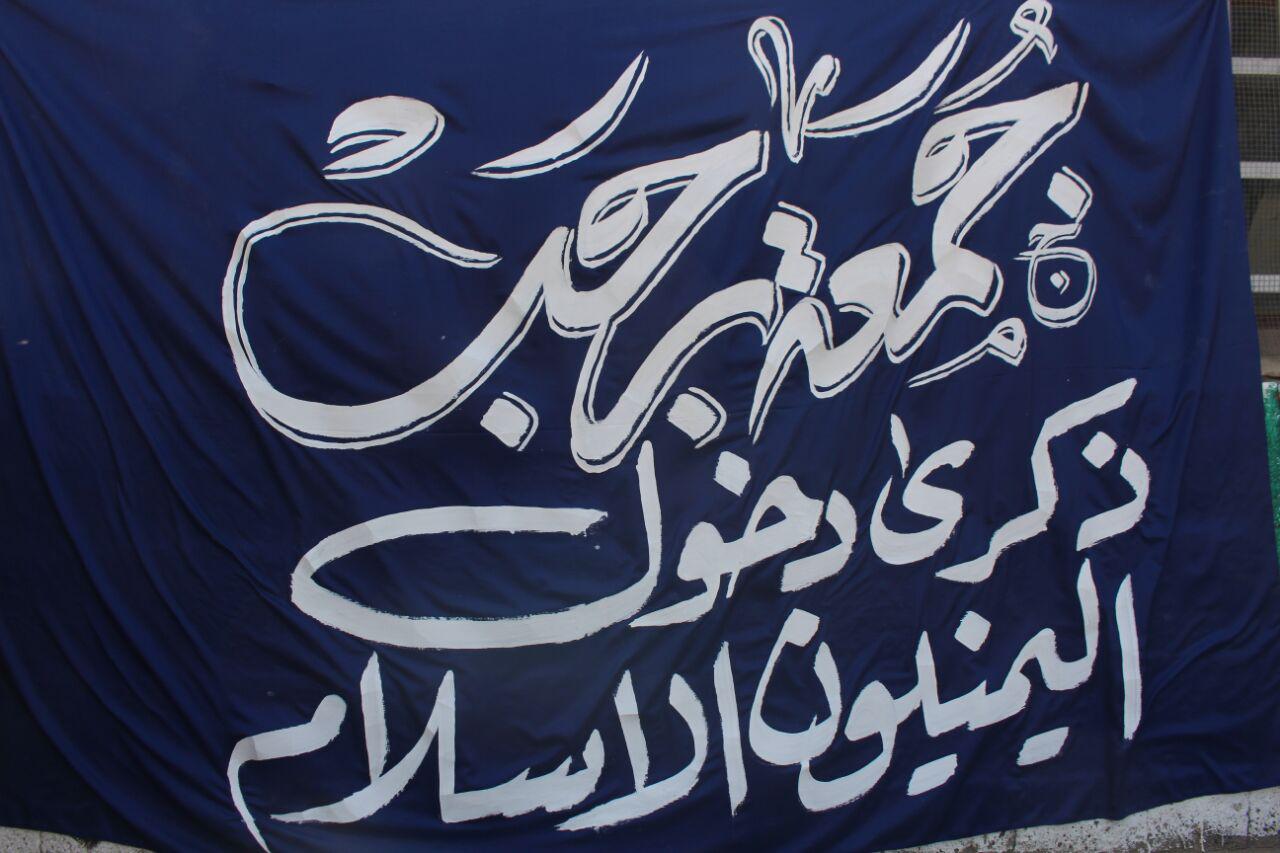 جُمعة رجب
ذكرى دخول
اليمنيون الاسلام